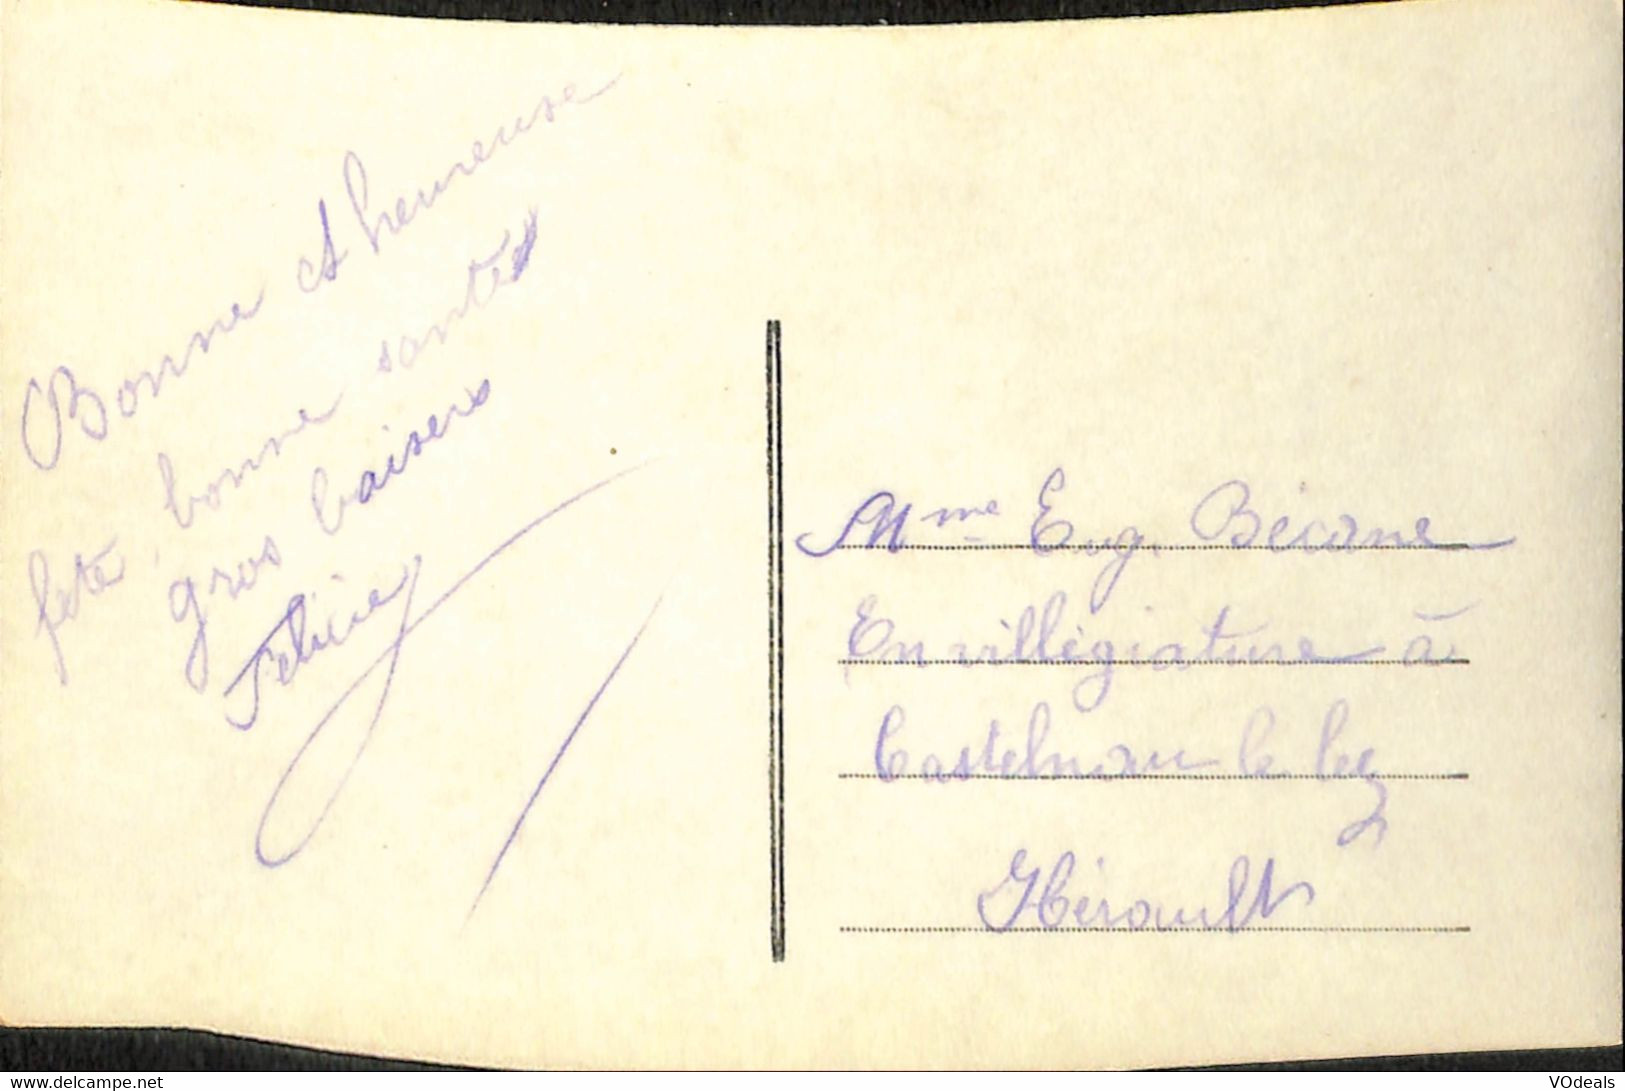 Bonne et heureuse
fête, bonne santé
gros baisers
Félicie
Mme Eug. Bécane
En villégiature à
Castelnau le lez
Hérault
www.delcampe.net
VOdeals